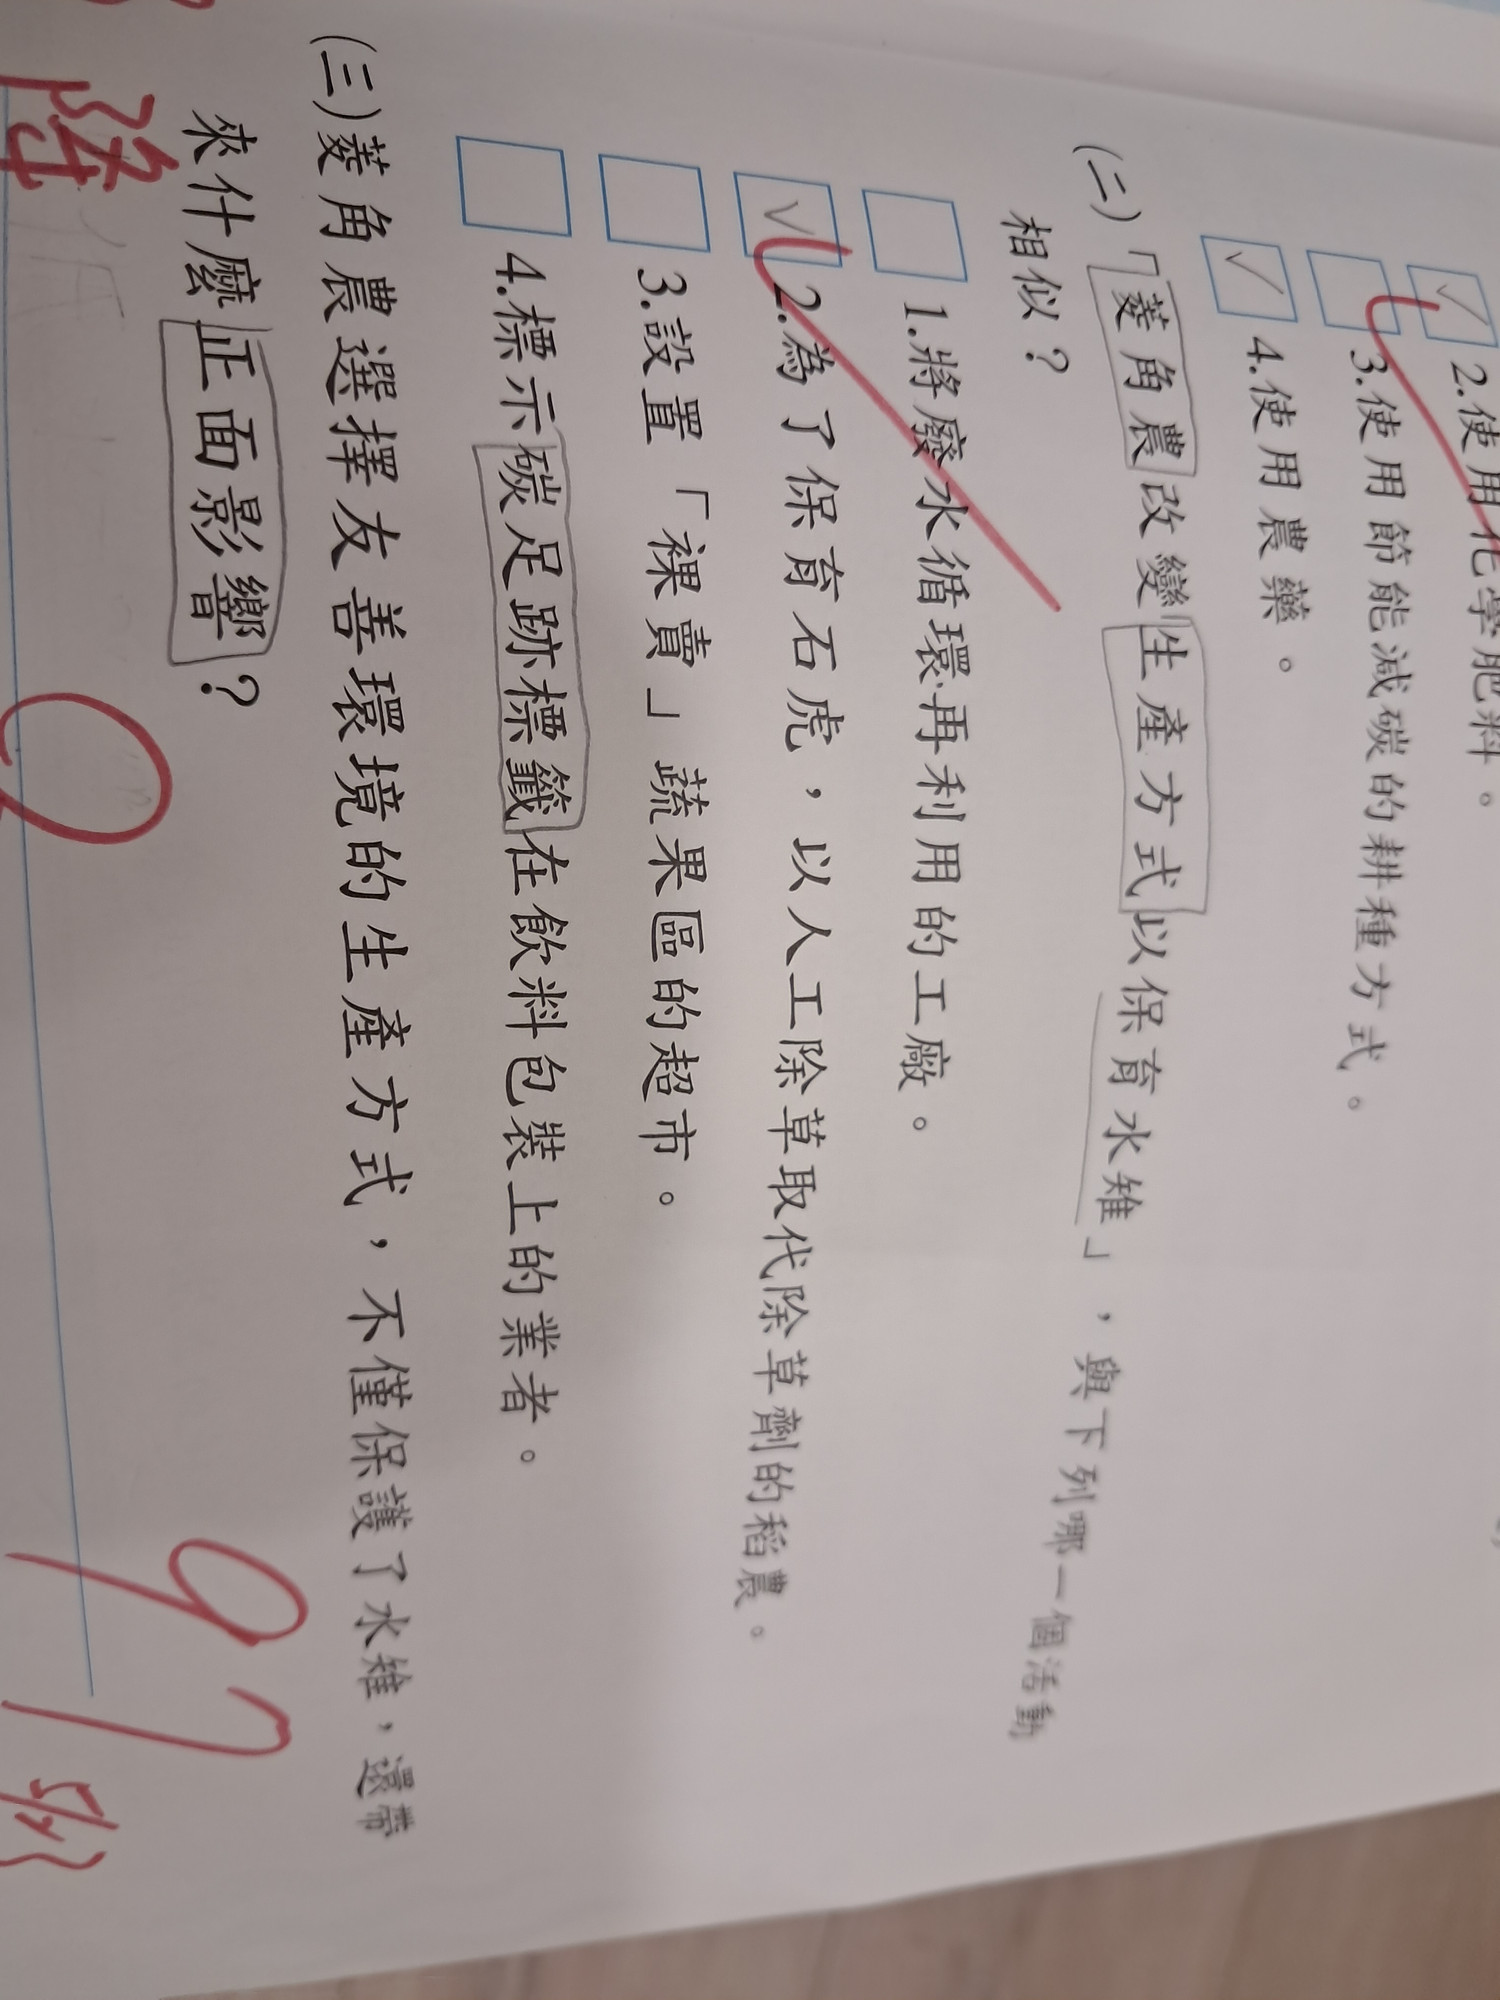 2.使用化學肥料。
3.使用節能減碳的耕種方式。
4.使用農藥。
(二)「菱角農改變生產方式以保育水雉」,與下列哪一個活動
相似?
1.將廢水循環再利用的工廠。
2.為了保育石虎,以人工除草取代除草劑的稻農。
3.設置「裸賣」蔬果區的超市。
4.標示碳足跡標籤在飲料包裝上的業者。
(三)菱角農選擇友善環境的生產方式,不僅保護了水雉,還帶
來什麼正面影響?